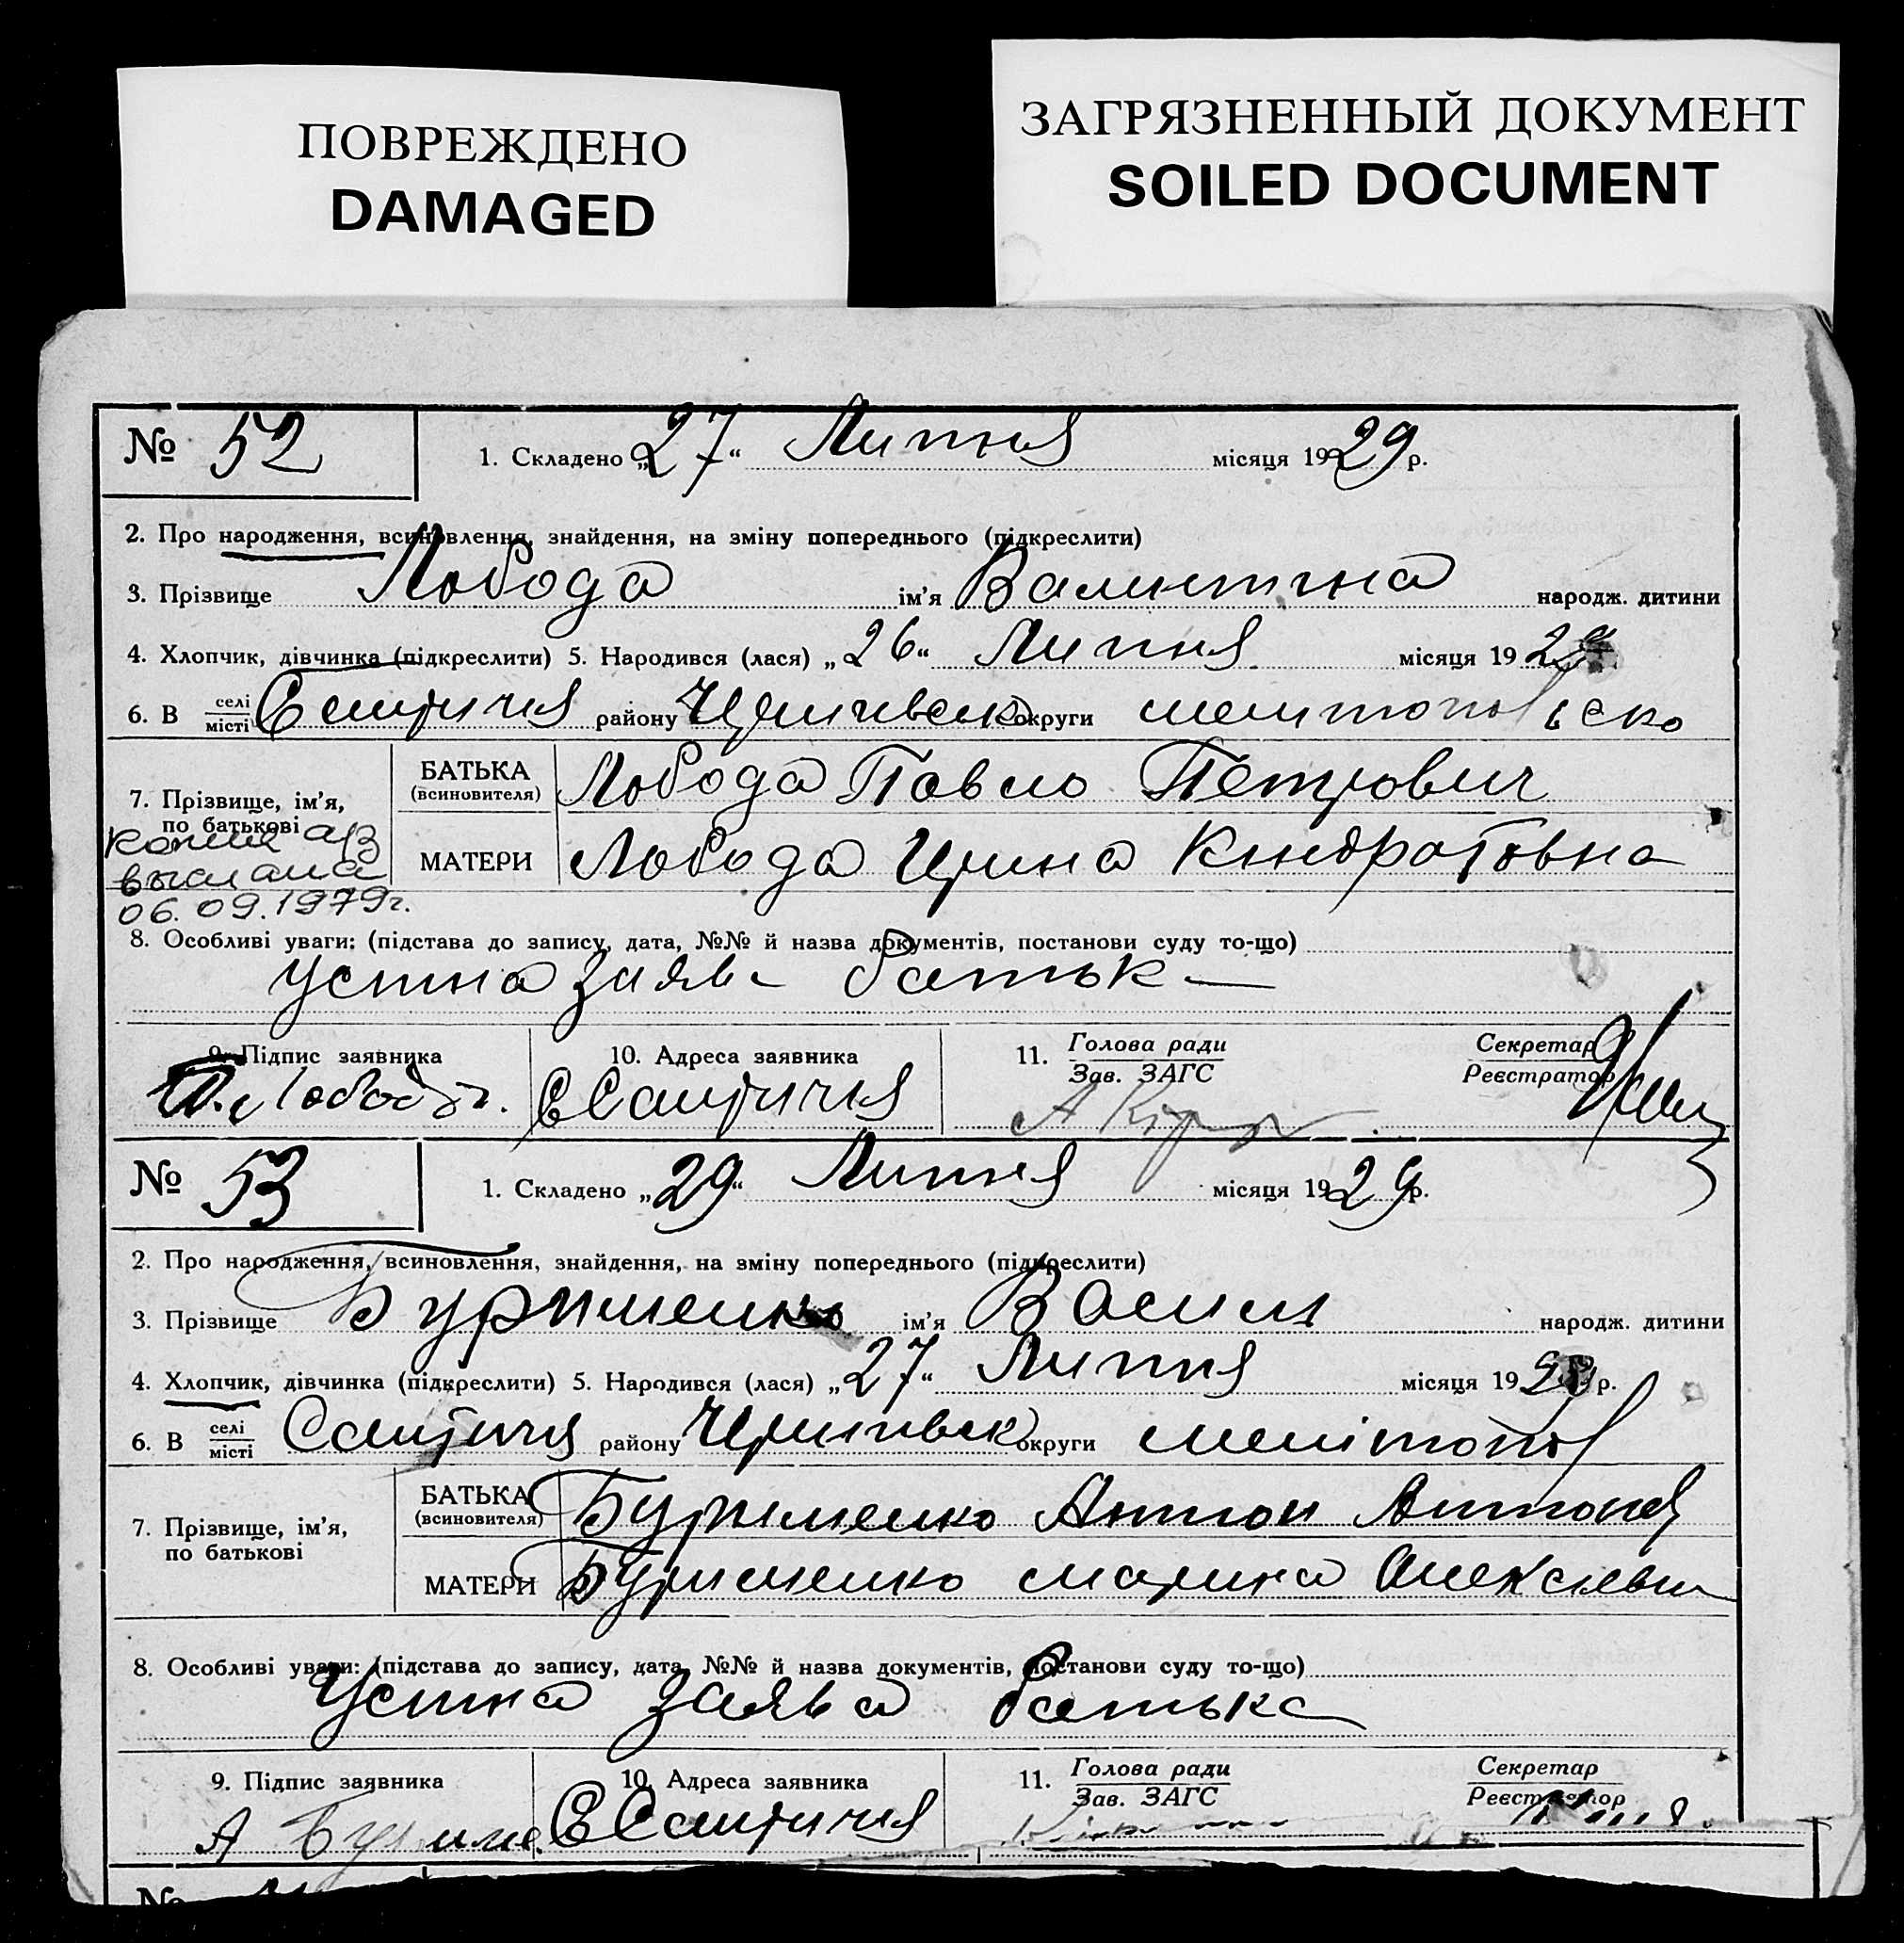 ПОВРЕЖДЕНО
DAMAGED
ЗАГРЯЗНЕННЫЙ ДОКУМЕНТ
SOILED DOCUMENT
№ 52
1. Складено „27“ Липня місяця 1929 р.
2. Про народження, всиновлення, знайдення, на зміну попереднього (підкреслити)
3. Прізвище Лобода ім'я Валентина народж. дитини
4. Хлопчик, дівчинка (підкреслити) 5. Народився (лася) „26“ Липня місяця 1929
6. В селі місті району округи
7. Прізвище, ім'я, по батькові
БАТЬКА (всиновителя) Лобода Павло Петрович
МАТЕРИ Лобода Ирина Кндратовна
копия
выслана
06.09.1979г.
8. Особливі уваги: (підстава до запису, дата, №№ й назва документів, постанови суду то-що)
Устна заяв батьк
9. Підпис заявника 10. Адреса заявника 11. Голова ради Зав. ЗАГС Секретар Реєстратор
П. Лобода
№ 53
1. Складено „29“ Липня місяця 1929 р.
2. Про народження, всиновлення, знайдення, на зміну попереднього (підкреслити)
3. Прізвище Бурименко ім'я Васил народж. дитини
4. Хлопчик, дівчинка (підкреслити) 5. Народився (лася) „27“ Липня місяця 19 р.
6. В селі місті району округи мелітопол
7. Прізвище, ім'я, по батькові
БАТЬКА (всиновителя) Бурименко Антон Антонов
МАТЕРИ Бурименко Марина
8. Особливі уваги: (підстава до запису, дата, №№ й назва документів, постанови суду то-що)
Устна заява батька
9. Підпис заявника 10. Адреса заявника 11. Голова ради Зав. ЗАГС Секретар Реєстратор
А Буриме
№